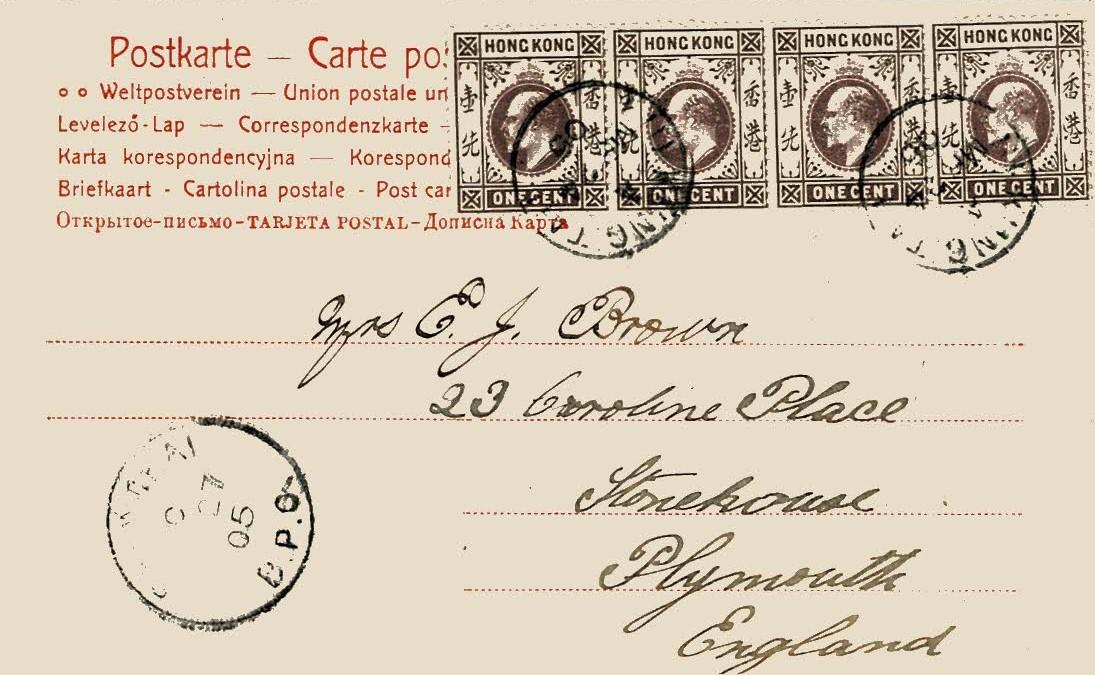 Postkarte — Carte pos
Weltpostverein — Union postale un
Levelező-Lap — Correspondenzkarte -
Karta korespondencyjna — Korespond
Briefkaart - Cartolina postale - Post car
Открытое-письмо-TARJETA POSTAL-Дописна Карта
HONG KONG HONG KONG HONG KONG HONG KONG
壹 香 香 壹 香 香
先 港 港 先 港 港
ONE CENT ONE CENT ONE CENT ONE CENT
Mrs E. J. Brown
23 Caroline Place
Stonehouse
Plymouth
England
27
05
B.P.O